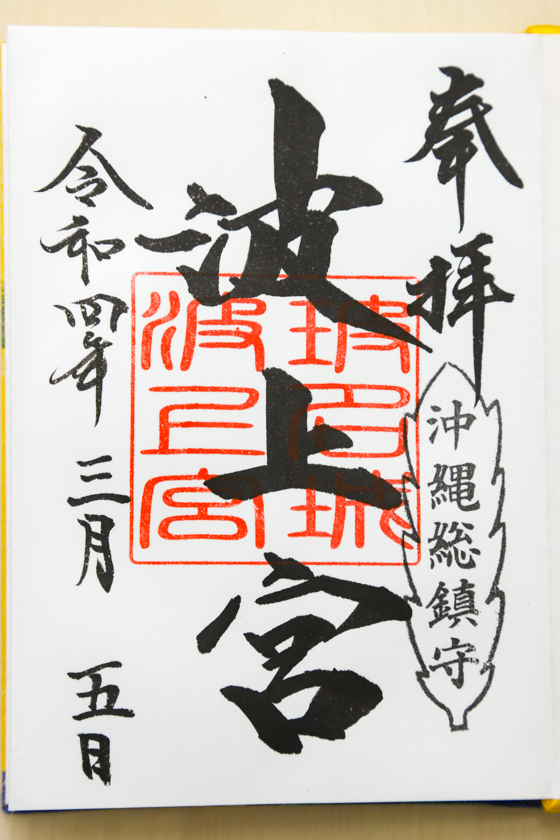 奉拝
沖縄総鎮守
波上宮
令和四年三月五日
波上宮